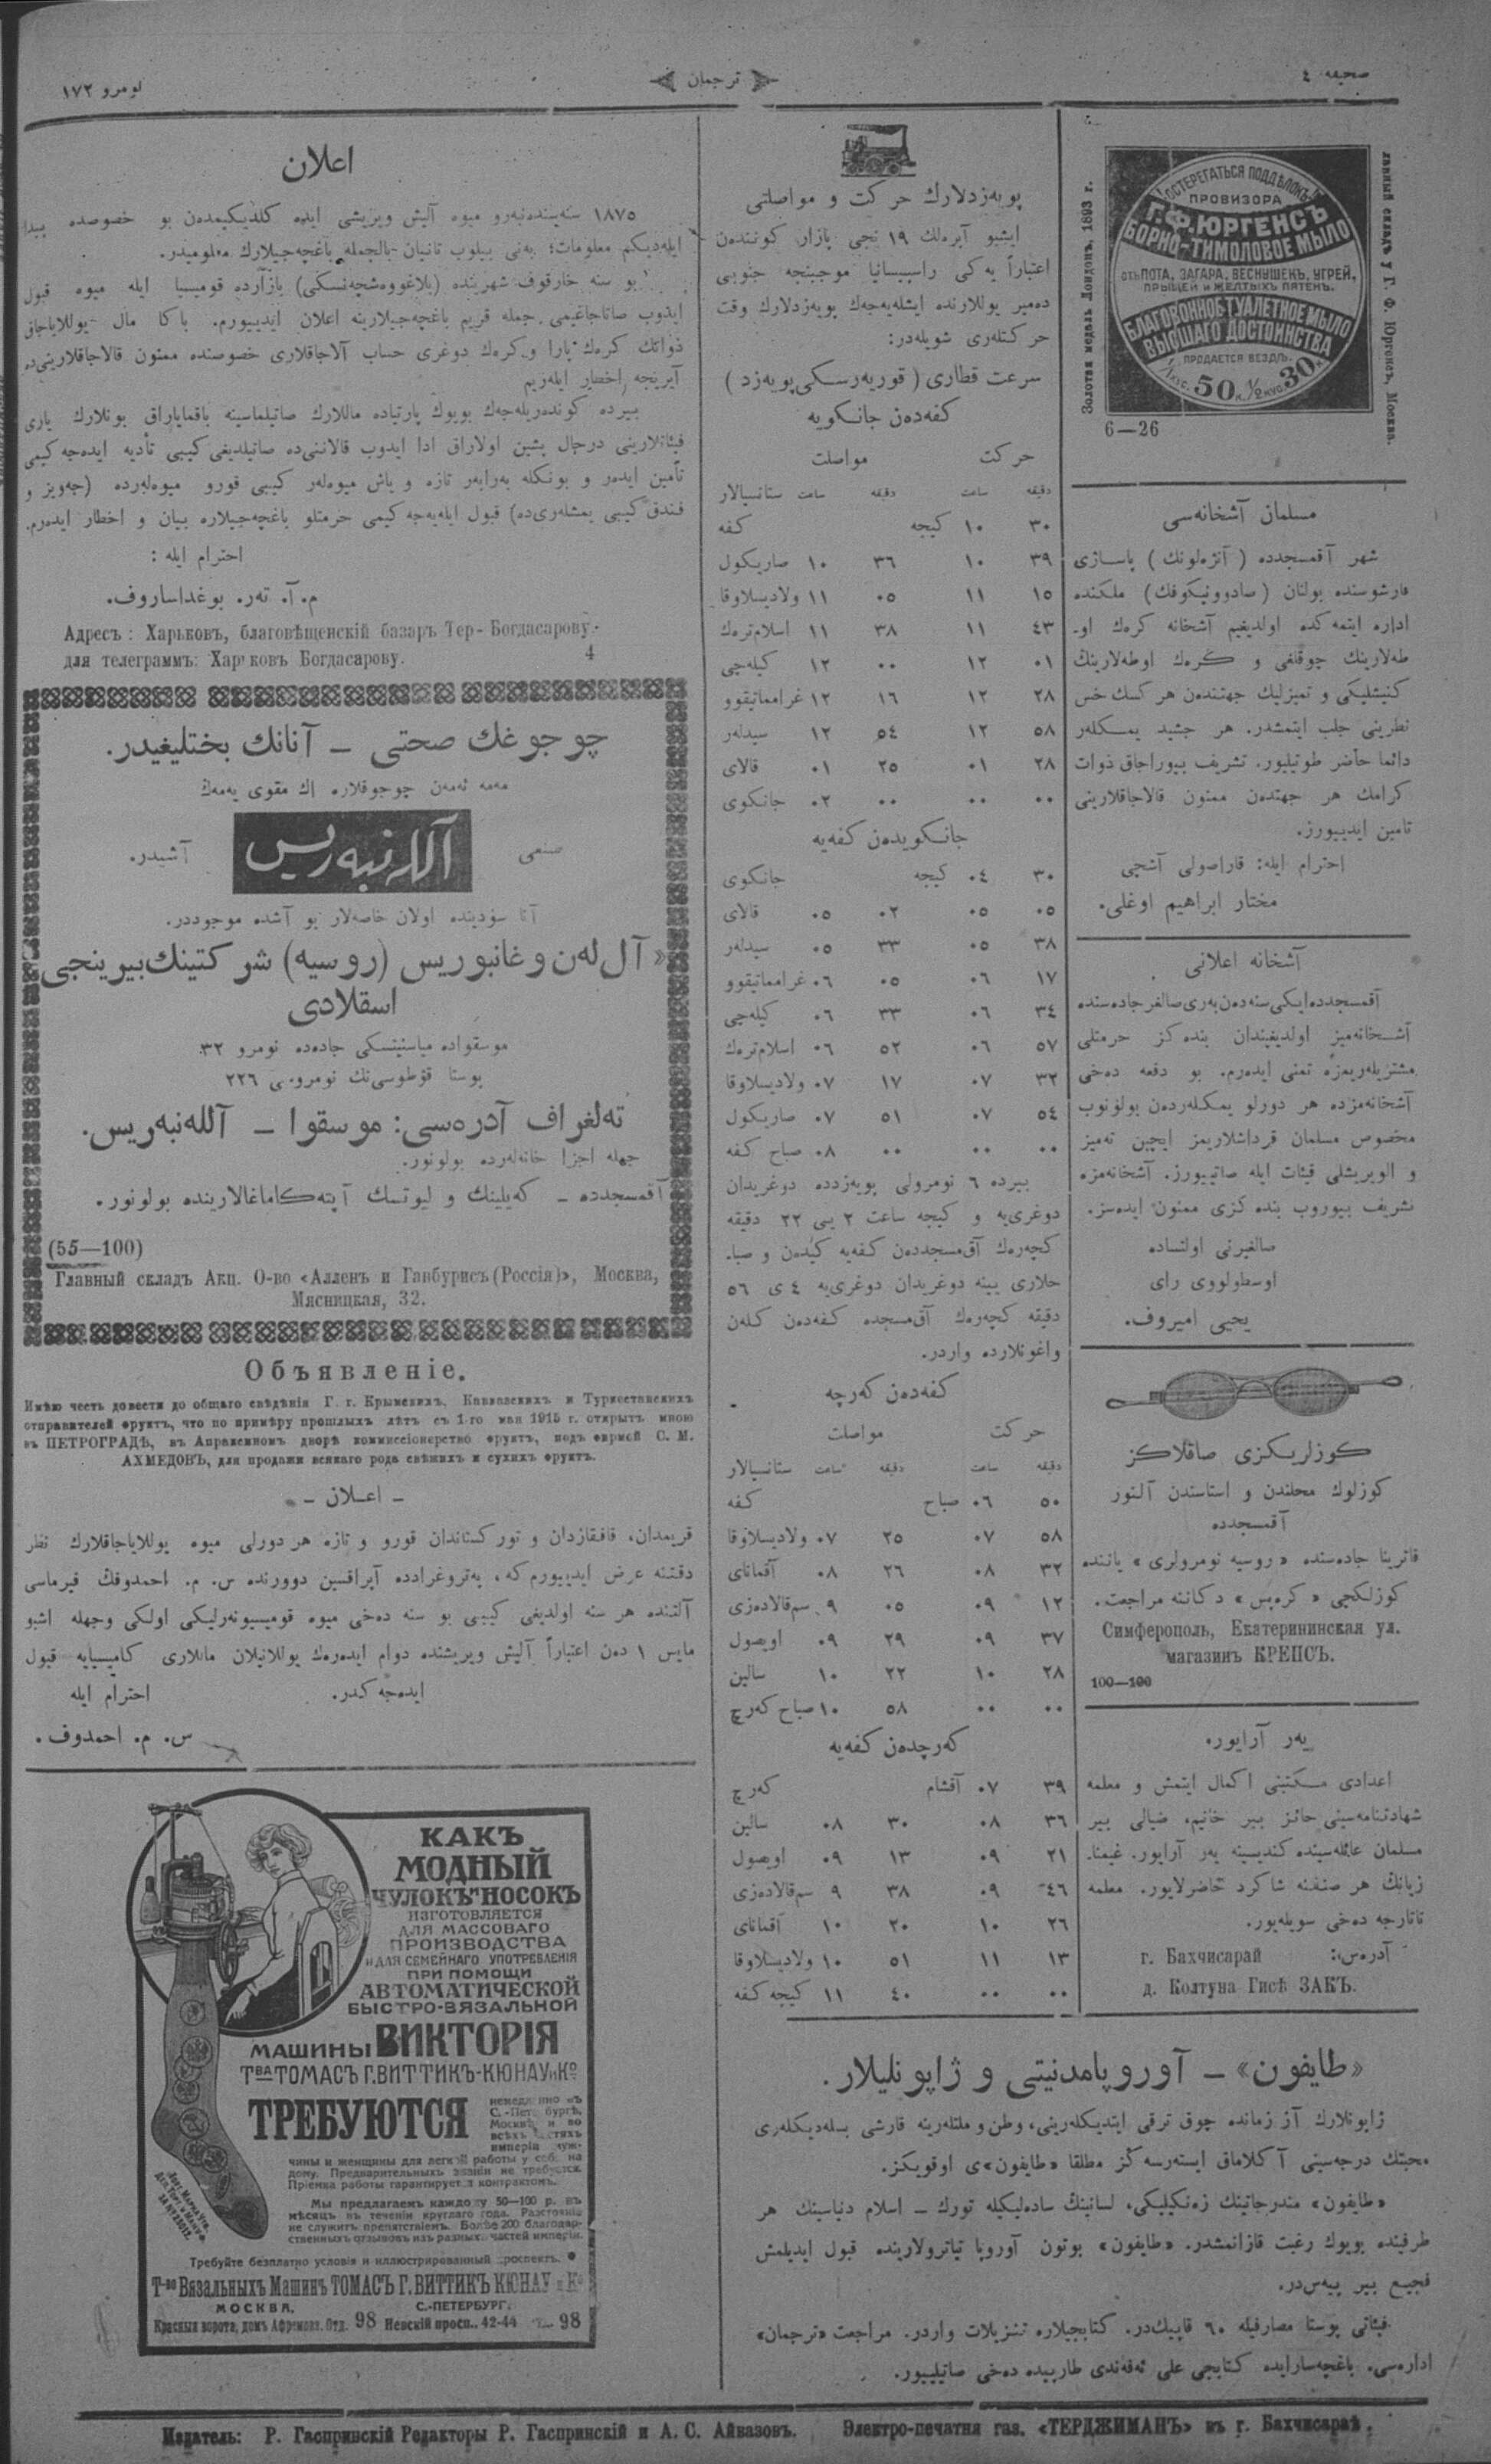 صحیفه ٤
ترجمان
نومرو ١٧٢
Золотая медаль Лондонъ, 1893 г.
ОСТЕРЕГАТЬСЯ ПОДДѢЛОКЪ!
ПРОВИЗОРА
Г.Ф.ЮРГЕНСЪ
БОРНО-ТИМОЛОВОЕ МЫЛО
отъ ПОТА, ЗАГАРА, ВЕСНУШЕКЪ, УГРЕЙ,
ПРЫЩЕЙ и ЖЕЛТЫХЪ ПЯТЕНЪ.
БЛАГОВОННОЕ ТУАЛЕТНОЕ МЫЛО
ВЫСШАГО ДОСТОИНСТВА
ПРОДАЕТСЯ ВЕЗДѢ.
1 кус. 50 к. 1/2 кус. 30 к.
главный складъ у Г. Ф. Юргенсъ, Москва.
6—26
مسلمان آشخانه‌سی
شهر آقمسجدده (آنژه‌لونك) پاساژی
قارشوسنده بولنان (صادوونیكوفك) ملكنده
اداره ایتمه‌كده اولدیغیم آشخانه كرك او-
طه‌لارینك چوقلغی و كرك اوطه‌لارینك
كنیشلیكی و تمیزلیك جهتندن هر كسك خس
نظرینی جلب ایتمشدر. هر چشید یمكلر
دائما حاضر طوتیلیور. تشریف بیوراجاق ذوات
كرامك هر جهتدن ممنون قالاجاقلارینی
تامین ایدییورز.
احترام ایله: قاراصولی آشچی
مختار ابراهیم اوغلی.
آشخانه اعلانی
آقمسجدده ایكی سنه‌دن به‌ری صالغر جاده‌سنده
آشخانه‌میز اولدیغیندان بنده‌كز حرمتلی
مشتریلریمزه تمنی ایده‌رم. بو دفعه ده‌خی
آشخانه‌مزده هر دورلو یمكلردن بولونوب
مخصوص مسلمان قرداشلاریمز ایچین ته‌میز
و الویریشلی فیئات ایله صاتییورز. آشخانه‌مزه
تشریف بیوروب بنده‌كزی ممنون ایده‌سز.
صالغیرنی اولتساده
اوسطولووی رای
یحیی امیروف.
كوزلریكزی صاقلاكز
كوزلوك محلندن و استاسندن آلنور
آقمسجدده
قاترینا جاده‌سنده «روسیه نومرولری» یاننده
كوزلكچی «كره‌پس» دكاننه مراجعت.
Симферополь, Екатерининская ул.
магазинъ КРЕПСЪ.
100—100
یه‌ر آرایور.
اعدادی مكتبنی اكمال ایتمش و معلمه
شهادتنامه‌سینی حائز بیر خانیم، ضیالی بیر
مسلمان عائله‌سینده كندیسینه یه‌ر آرایور. غیمنا-
زیانڭ هر صنفنه شاكرد حاضرلایور. معلمه
تاتارجه ده‌خی سویله‌یور.
آدره‌س: г. Бахчисарай
д. Колтуна Гисѣ ЗАКЪ.
پویه‌زدلارك حركت و مواصلتی
ایشبو آپره‌لك ١٩ نجی بازار كونندن
اعتباراً یه‌كی راسپیسانیا موجبنجه جنوبی
ده‌میر یوللارنده ایشله‌یه‌جك پویه‌زدلارك وقت
حركتلری شویله‌در:
سرعت قطاری (قوریه‌رسكی پویه‌زد)
كفه‌دن جانكویه
حركت مواصلت
دقیقه ساعت دقیقه ساعت ستانسیالار
٣٠ ١٠ كیجه كفه
٣٩ ١٠ ٣٦ ١٠ صاریكول
١٥ ١١ ٠٥ ١١ ولادیسلاوقا
٤٣ ١١ ٣٨ ١١ اسلام‌ترك
٠١ ١٢ ٠٠ ١٢ كیله‌چی
٢٨ ١٢ ١٦ ١٢ غراماتیقوو
٥٨ ١٢ ٥٤ ١٢ سیدلر
٢٨ ٠١ ٢٥ ٠١ قالای
٠٠ ٠٠ ٠٠ ٠٢ جانكوی
جانكویدن كفه‌یه
٣٠ ٠٤ كیجه جانكوی
٠٥ ٠٥ ٠٢ ٠٥ قالای
٣٨ ٠٥ ٣٣ ٠٥ سیدلر
١٧ ٠٦ ٠٥ ٠٦ غراماتیقوو
٣٤ ٠٦ ٣٣ ٠٦ كیله‌چی
٥٧ ٠٦ ٥٢ ٠٦ اسلام‌ترك
٣٢ ٠٧ ١٧ ٠٧ ولادیسلاوقا
٥٤ ٠٧ ٥١ ٠٧ صاریكول
٠٠ ٠٠ ٠٠ ٠٨ صباح كفه
بیرده ٦ نومرولی پویه‌زدده دوغریدان
دوغری‌یه و كیجه ساعت ٢ یی ٢٢ دقیقه
كچه‌رك آق‌مسجددن كفه‌یه كیدن و صبا-
حلاری یینه دوغریدان دوغری‌یه ٤ ی ٥٦
دقیقه كچه‌رك آق‌مسجده كفه‌دن كلن
واغونلارده واردر.
كفه‌دن كه‌رچه
حركت مواصلت
دقیقه ساعت دقیقه ساعت ستانسیالار
٥٠ ٠٦ صباح كفه
٥٨ ٠٧ ٢٥ ٠٧ ولادیسلاوقا
٣٢ ٠٨ ٢٦ ٠٨ آقمانای
١٢ ٠٩ ٠٥ ٩ سم‌قالاده‌زی
٣٧ ٠٩ ٢٩ ٠٩ اویصول
٢٨ ١٠ ٢٢ ١٠ سالین
٠٠ ٠٠ ٥٨ ١٠ صباح كه‌رچ
كه‌رچدن كفه‌یه
٣٩ ٠٧ آقشام كه‌رچ
٣٦ ٠٨ ٣٠ ٠٨ سالین
٢١ ٠٩ ١٣ ٠٩ اویصول
٤٦ ٠٩ ٣٨ ٩ سم‌قالاده‌زی
٢٦ ١٠ ٢٠ ١٠ آقمانای
١٣ ١١ ٥١ ١٠ ولادیسلاوقا
٠٠ ٠٠ ٤٠ ١١ كیجه كفه
«طایفون» – آوروپا مدنیتی و ژاپونلیلار.
ژاپونلارك آز زمانده چوق ترقی ایتدیكلرینی، وطن و ملتلرینه قارشی بسله‌دیكلری
محبتك درجه‌سینی آكلاماق ایسته‌رسه‌كز مطلقا «طایفون»ی اوقویكز.
«طایفون» مندرجاتینك زه‌نكیلیكی، لسانینڭ ساده‌لیكیله تورك – اسلام دنیاسینك هر
طرفینده بویوك رغبت قازانمشدر. «طایفون» بوتون آوروپا تیاترولارینده قبول ایدیلمش
فجیع بیر پیه‌س‌در.
فیئاتی پوستا مصارفیله ٦٠ قاپیك‌در. كتابجیلاره تنزیلات واردر. مراجعت «ترجمان»
اداره‌سی. باغچه‌سارایده كتابجی علی ئه‌فه‌ندی طارپیده ده‌خی صاتیلییور.
اعلان
١٨٧٥ سنه‌سیندنبه‌رو میوه آلیش ویریشی ایده كلدیكیمدن بو خصوصده پیدا
ایله‌دیكم معلومات؛ به‌نی بیلوب تانیان بالجمله باغچه‌جیلارك معلومیدر.
بو سنه خارقوف شهرینده (بلاغووه‌شچه‌نسكی) بازآرده قومیسیا ایله میوه قبول
ایدوب صاتاجاغیمی جمله قریم باغچه‌جیلارینه اعلان ایدییورم. باكا مال یوللایاجاق
ذواتك كرك پارا و كرك دوغری حساب آلاجاقلاری خصوصنده ممنون قالاجاقلارینی‌ده
آیریجه اخطار ایله‌ریم
بیرده كوندریله‌جك بویوك پارتیاده ماللارك صاتیلماسینه باقمایاراق بونلارك یاری
فیئاتلارینی درحال پشین اولاراق ادا ایدوب قالاننی‌ده صاتیلدیغی كیبی تأدیه ایده‌جه كیمی
تأمین ایده‌ر و بونكله به‌رابه‌ر تازه و یاش میوه‌لر كیبی قورو میوه‌لرده (جه‌ویز و
فندق كیبی یمشلری‌ده) قبول ایله‌یه‌جه كیمی حرمتلو باغچه‌جیلاره بیان و اخطار ایده‌رم.
احترام ایله :
م. آ. ته‌ر. بوغداساروف.
Адресъ: Харьковъ, благовѣщенскій базаръ Тер-Богдасарову.
для телеграммъ: Харьковъ Богдасарову. 4
چوجوغك صحتی – آنانك بختلیغیدر.
مه‌مه ئه‌مه‌ن چوجوقلاره اك مقوی یه‌مه‌ك
صنعی آللەنبەریس آشیدر.
آنا سؤدینده اولان خاصه‌لار بو آشده موجوددر.
«آل‌له‌ن و غانبوریس (روسیه) شركتینك بیرینجی
اسقلادی
موسقواده میاسنیتسكی جاده‌ده نومرو ٣٢
پوستا قؤطوسی‌نك نومروسی ٢٢٦
ته‌لغراف آدره‌سی: موسقوا – آللەنبەریس.
جمله اجزا خانه‌لرده بولونور.
آقمسجدده – كه‌یلینك و لیوتسك آپته‌كاماغالارینده بولونور.
(55—100)
Главный складъ Акц. О-во «Алленъ и Ганбурисъ (Россія)», Москва,
Мясницкая, 32.
Объявленіе.
Имѣю честь довести до общаго свѣдѣнія Г. г. Крымскихъ, Кавказскихъ и Туркестанскихъ
отправителей фруктъ, что по примѣру прошлыхъ лѣтъ съ 1-го мая 1915 г. открытъ мною
въ ПЕТРОГРАДѢ, въ Апраксиномъ дворѣ коммиссіонерство фруктъ, подъ фирмой С. М.
АХМЕДОВЪ, для продажи всякаго рода свѣжихъ и сухихъ фруктъ.
– اعلان –
قریمدان، قافقازدان و توركستاندان قورو و تازه هر دورلی میوه یوللایاجاقلارك نظر
دقتنه عرض ایدییورم كه، په‌تروغرادده آپراقسین دوورنده س. م. احمدوفك فیرماسی
آلتنده هر سنه اولدیغی كیبی بو سنه ده‌خی میوه قومیسیونه‌رلیكی اولكی وجهله اشبو
مایس ١ ده‌ن اعتباراً آلیش ویریشنده دوام ایده‌رك یوللانیلان ماللاری كامیسیایه قبول
ایده‌جه كدر. احترام ایله
س. م. احمدوف.
КАКЪ
МОДНЫЙ
ЧУЛОКЪ и НОСОКЪ
ИЗГОТОВЛЯЕТСЯ
ДЛЯ МАССОВАГО
ПРОИЗВОДСТВА
и ДЛЯ СЕМЕЙНАГО УПОТРЕБЛЕНІЯ
ПРИ ПОМОЩИ
АВТОМАТИЧЕСКОЙ
БЫСТРО-ВЯЗАЛЬНОЙ
МАШИНЫ ВИКТОРІЯ
Т-ВА ТОМАСЪ Г. ВИТТИКЪ-КЮНАУ и Ко
ТРЕБУЮТСЯ
немедленно въ
С.-Петербургѣ,
Москвѣ и во
всѣхъ частяхъ
имперіи муж-
чины и женщины для легкой работы у себя на
дому. Предварительныхъ знаній не требуется.
Пріемка работы гарантируется контрактомъ.
Мы предлагаемъ каждому 50—100 р. въ
мѣсяцъ въ теченіи круглаго года. Разстояніе
не служитъ препятствіемъ. Болѣе 200 благодар-
ственныхъ отзывовъ изъ разныхъ частей имперіи.
Требуйте безплатно условія и иллюстрированный проспектъ.
Т-во Вязальныхъ Машинъ ТОМАСЪ Г. ВИТТИКЪ КЮНАУ и Ко
МОСКВА, С.-ПЕТЕРБУРГ,
Красныя ворота, домъ Афремова. Отд. 98 Невскій просп.. 42-44 98
Издатель: Р. Гаспринскій Редакторы Р. Гаспринскій и А. С. Айвазовъ. Электро-печатня газ. «ТЕРДЖИМАНЪ» въ г. Бахчисараѣ.